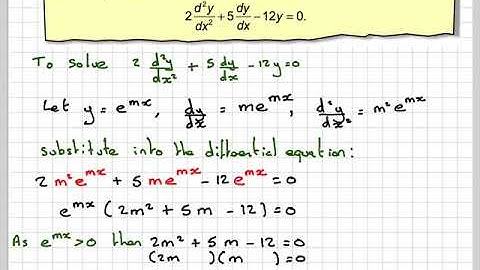 2 d²y/dx² + 5 dy/dx − 12y = 0.
To solve 2 d²y/dx² + 5 dy/dx − 12y = 0
Let y = e^mx, dy/dx = me^mx, d²y/dx² = m²e^mx
substitute into the differential equation:
2 m²e^mx + 5 me^mx − 12 e^mx = 0
e^mx (2m² + 5m − 12) = 0
As e^mx > 0 then 2m² + 5m − 12 = 0
(2m )(m ) = 0